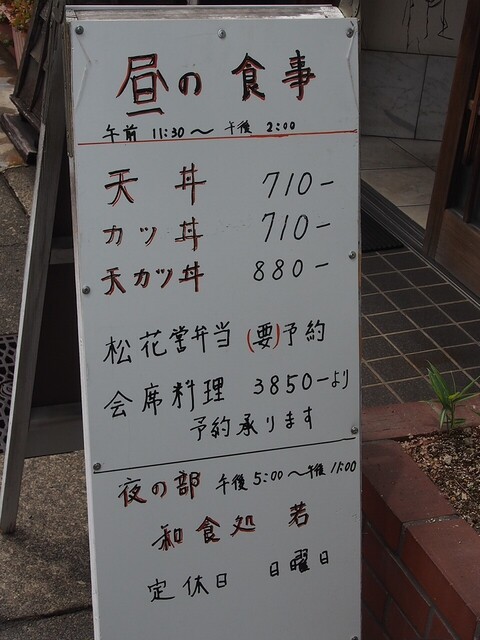 昼の食事
午前 11:30〜 午後 2:00
天丼 710-
カツ丼 710-
天カツ丼 880-
松花堂弁当 (要)予約
会席料理 3850-より
予約承ります
夜の部 午後5:00〜午後11:00
和食処 若
定休日 日曜日